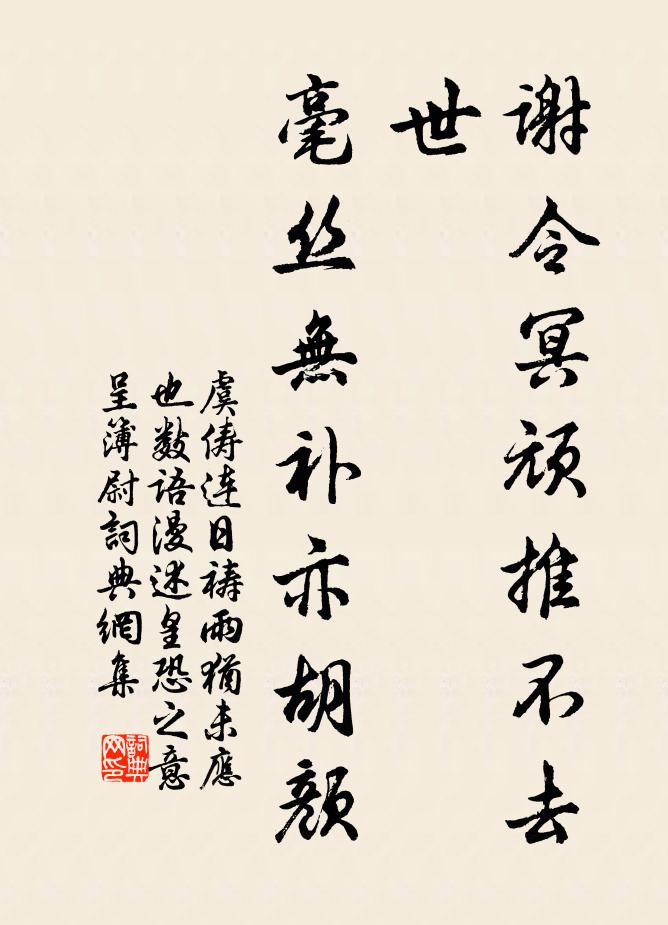 谢令冥顽推不去
世
毫丝無补亦胡颜
虞俦连日祷雨犹未應
也数语漫述皇恐之意
呈簿尉詞典網集
詞典網印